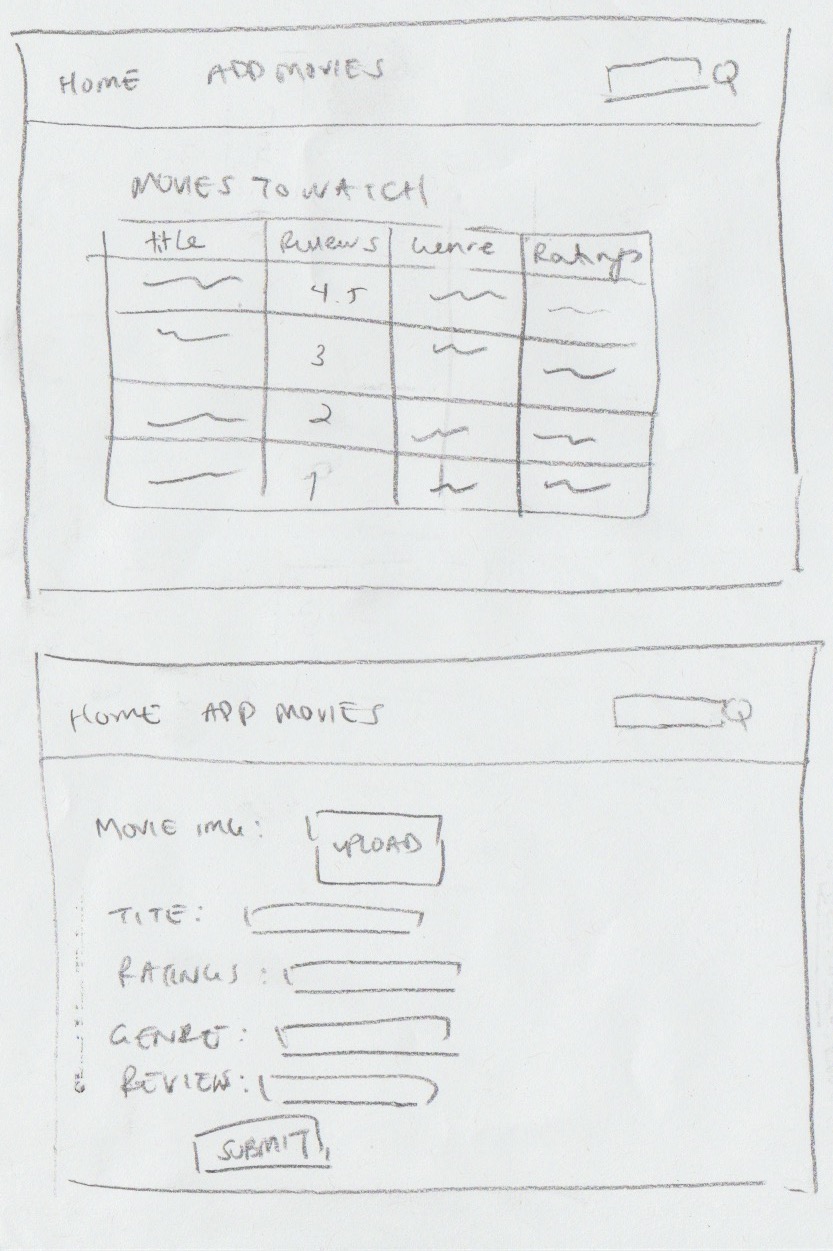 HOME ADD MOVIES
MOVIES TO WATCH
title Reviews Genre Ratings
4.5
3
2
1
HOME APP MOVIES
MOVIE IMG:
UPLOAD
TITE:
RATINGS:
GENRE:
REVIEW:
SUBMIT